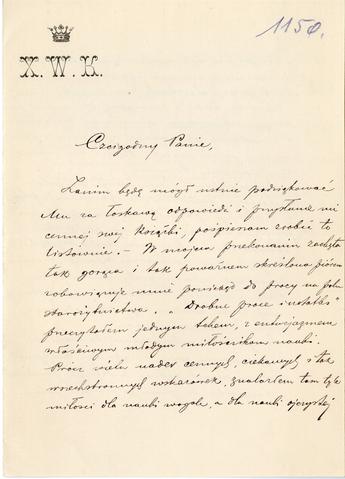 1150.
X. W. K.
Czcigodny Panie,
Zanim będę mógł ustnie podziękować
Mu za łaskawą odpowiedź i przysłanie mi
cennej swej książki, pośpieszam zrobić to
listownie. – W mojem przekonaniu zachęta
tak gorąca i tak poważnem skreślona piórem
zobowiązuje mnie do pracy na polu
starożytnictwa. „Drobne prace i notatki"
przeczytałem jednym tchem, z entuzjazmem
właściwym młodym miłośnikom nauki.
Prócz wielu nader cennych, ciekawych i tak
wszechstronnych wskazówek, znalazłem tam tyle
miłości dla nauki wogóle, a dla nauki ojczystej